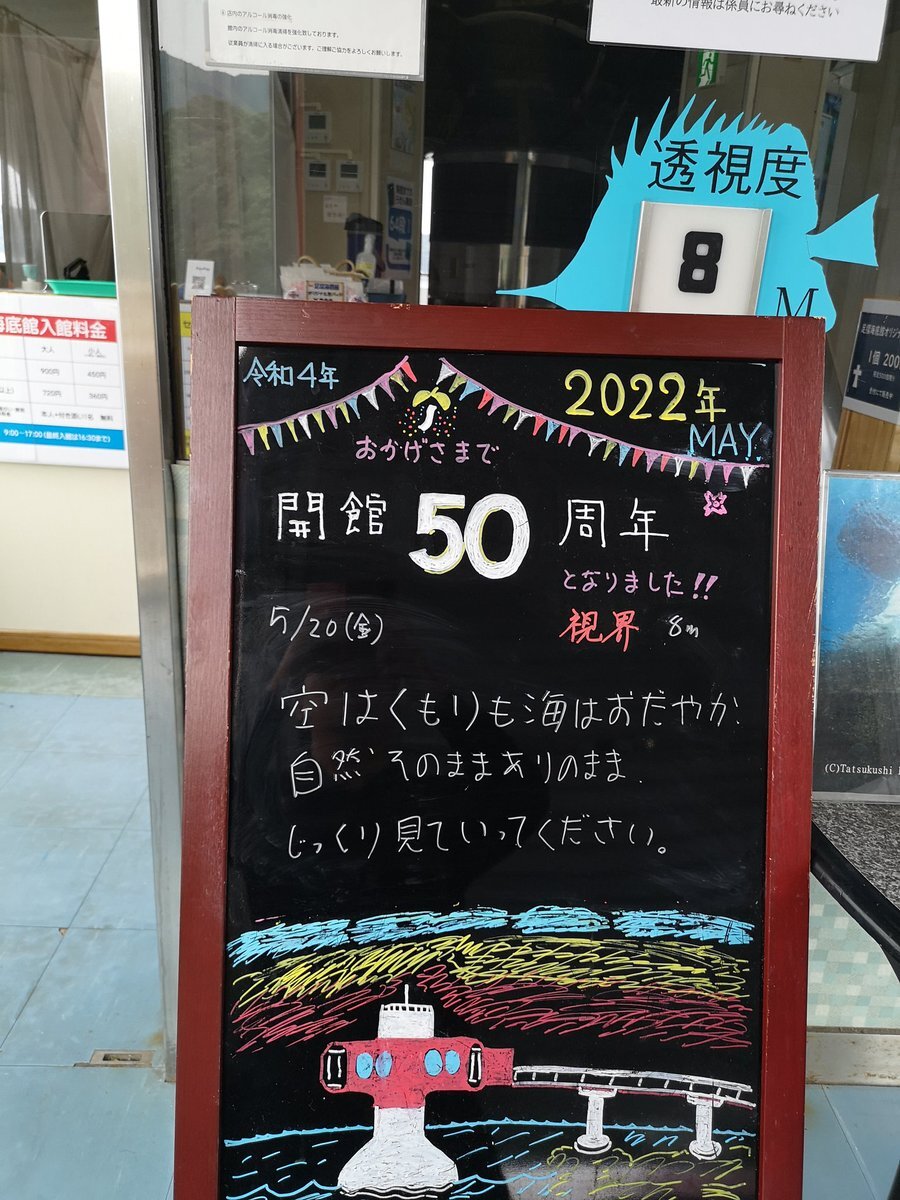 ④店内のアルコール消毒の強化
館内のアルコール消毒清掃を強化致しております。
従業員が清掃に入る場合がございます。ご理解ご協力をよろしくお願いします。
最新の情報は係員にお尋ねください
透視度
8
M
海底館入館料金
大人
小人
900円
450円
720円
360円
本人+付き添い1名 無料
9:00～17:00(最終入館は16:30まで)
足摺海底館オリジナ
1個 200
令和4年
2022年
MAY.
おかげさまで
開館50周年
となりました!!
5/20(金)
視界 8m
空はくもりも海はおだやか.
自然そのままありのまま.
じっくり見ていってください。
(C)Tatsukushi